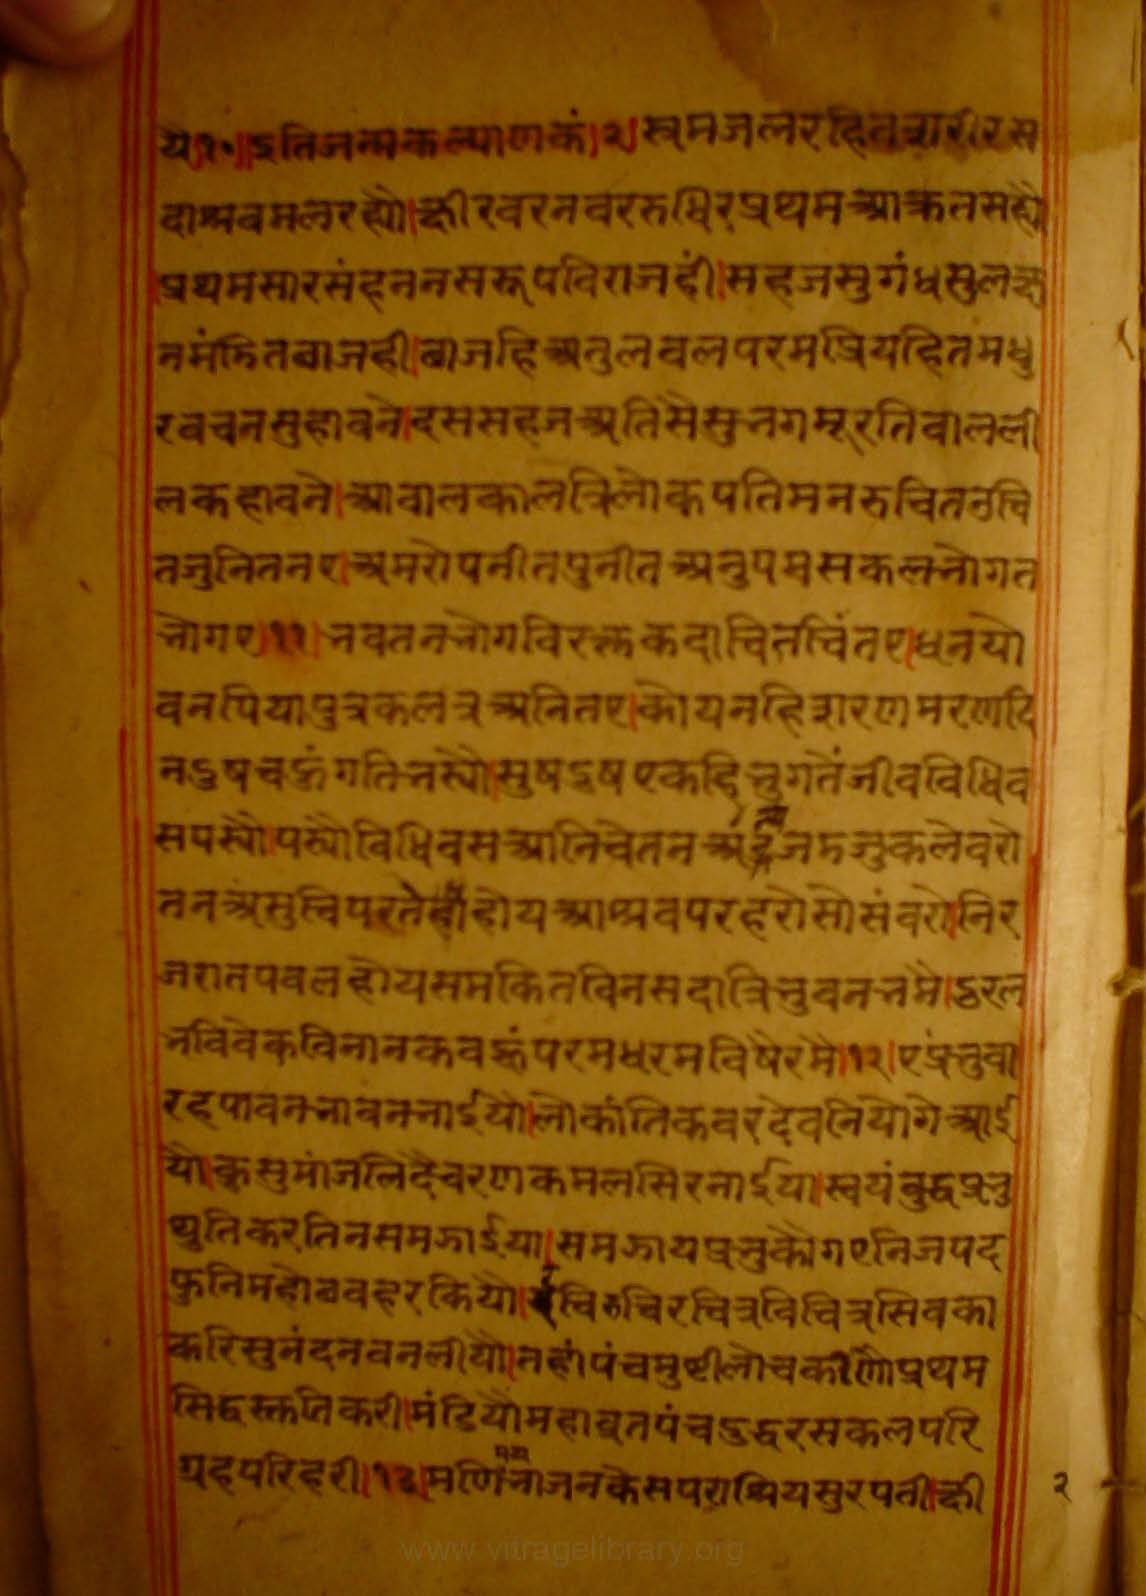 ये।१०।इतिजन्मकल्याणकं।२।स्रमजलरहितशरीरस
दाश्रवमलरह्यौ।क्षीरवरनवररुधिरप्रथमआक्रतसह्यौ
प्रथमसारसंहननसरूपविराजहीं।सहजसुगंधसुलछ
नमंडितछाजही।छाजहिअतुलवलपरमप्रियहितमधु
रवचनसुहावने।दससहजअतिसैसुभगमूरतिवालली
लकहावने।आवालकालत्रिलोकपतिमनरुचितउचि
तजुनितनए।अमरोपनीतपुनीतअनुपमसकलभोगत
भोगए।११।भवतनभोगविरक्तकदाचितचिंतए।धनयो
वनपियापुत्रकलत्रअनितए।कोयनहिशरणमरणदि
नदुषचहुंगतिभस्यौ।सुषदुषएकहिभुगतैंजीवविधिव
सपस्यौ।पस्यौविधिवसआनिचेतनअंन्यजडजुकलेवरो
तनअसुचिपरतेंहोहोयआश्रवपरहरोसोसंवरो।निर
जरातपवलहोयसमकितविनसदात्रिभुवनभमै।दुरल
भविवेकविनानकवहूंपरमधरमविषैरमै।१२।एप्रंभुवा
रहपावनभावनभाईयौ।लोकांतिकवरदेवनियोगेआई
यौ।कुसुमांजलिदैचरणकमलसिरनाईया।स्वयंबुद्धप्रभु
थुतिकरतिनसमझाईया।समझायप्रभुकौगएनिजपद
फुनिमहोछवहरकियौ।रुचिरुचिरचित्रविचित्रसिवका
करिसुनंदनवनलीयौ।तहांपंचमुष्टीलोचकीणौप्रथम
सिद्धस्तणिकरी।मंडियौमहाव्रतपंचदुद्धरसकलपरि
ग्रहपरिहरी।१३।मणिमयभाजनकेसपराथियसुरपती।क्षी
२
www.vitragelibrary.org